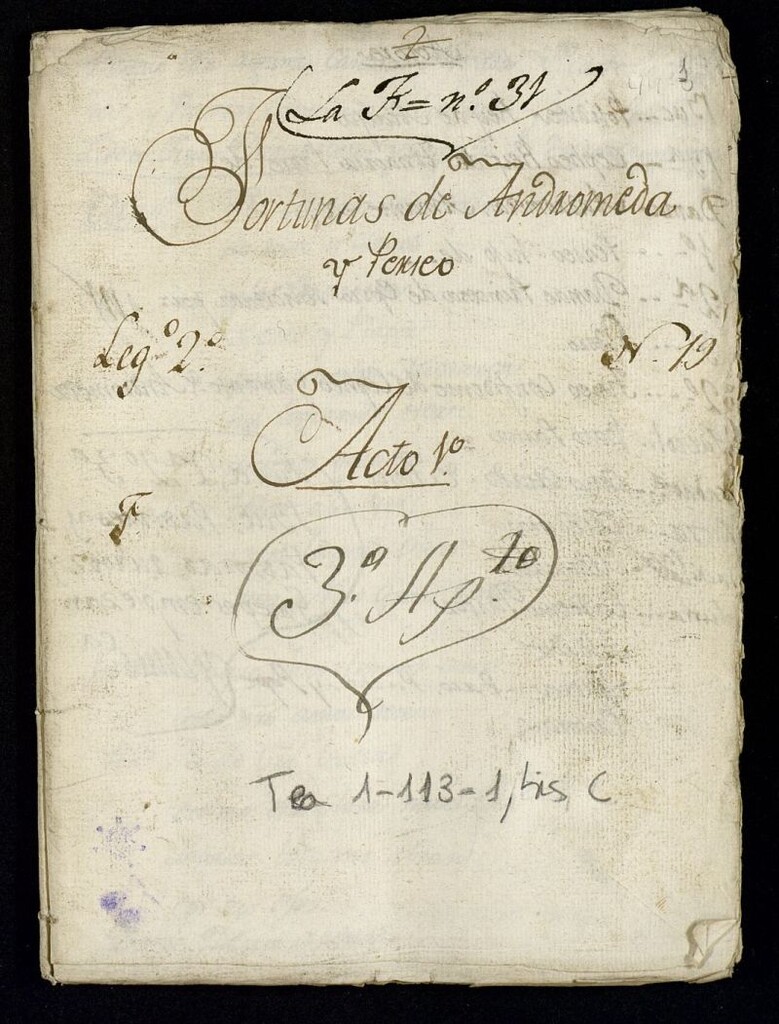 La F= nº. 31
Fortunas de Andromeda
y Perseo
Legº 2º.
N. 19
Acto 1º.
F
3º. Ap to
Tea 1-113-1, bis, C